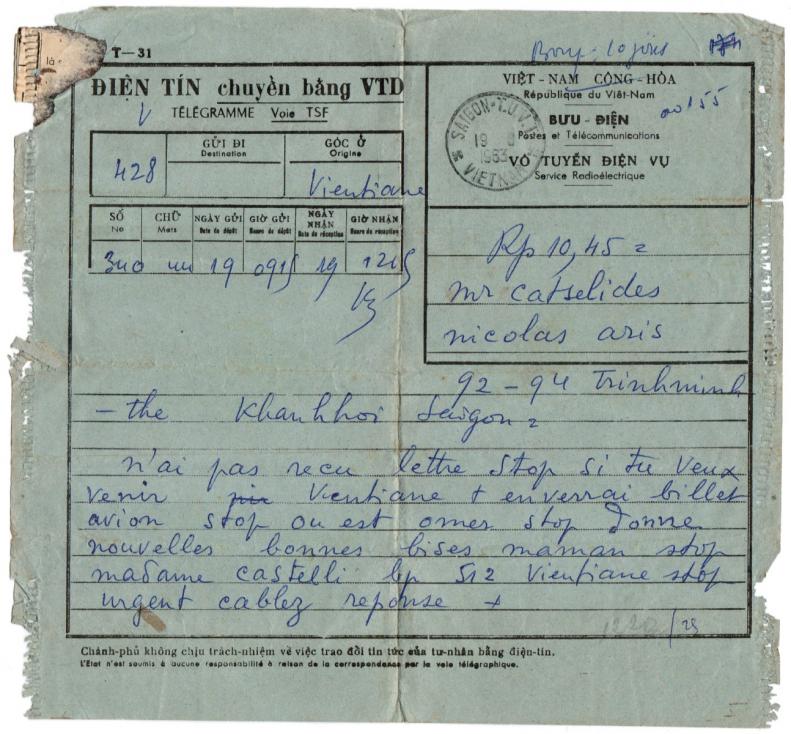 là
T-31
Bong - 10 jours
ĐIỆN TÍN chuyển bằng VTD
TÉLÉGRAMME Voie TSF
V
VIỆT-NAM CỘNG-HÒA
République du Viêt-Nam
00155
BƯU-ĐIỆN
Postes et Télécommunications
VÔ TUYẾN ĐIỆN VỤ
Service Radioélectrique
SAIGON-T.U.V.T.
19
1963
VIETNAM
GỬI ĐI
Destination
GỐC Ở
Origine
428
Vientiane
SỐ
No
CHỮ
Mots
NGÀY GỬI
Date de dépôt
GIỜ GỬI
Heure de dépôt
NGÀY NHẬN
Date de réception
GIỜ NHẬN
Heure de réception
340 44 19 0915 19 1215
Rp 10,45 =
mr catselides
nicolas aris
92-94 Trinhminh
-the Khanhhoi Saigon =
n'ai pas recu lettre stop si tu veux
venir Vientiane + enverrai billet
avion stop ou est omer stop donne
nouvelles bonnes bises maman stop
madame castelli bp 512 Vientiane stop
urgent cablez reponse +
1220/25
Chánh-phủ không chịu trách-nhiệm về việc trao đổi tin tức của tư-nhân bằng điện-tín.
L'Etat n'est soumis à aucune responsabilité à raison de la correspondance par la voie télégraphique.